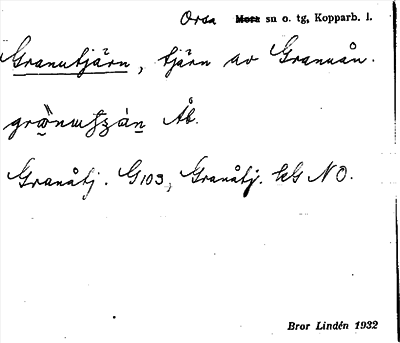 Orsa Mora sn o. tg, Kopparb. l.
Granutjärn, tjärn av Granuån.
Åb.
Granåtj. G103, Granåtj. kG NO.
Bror Lindén 1932